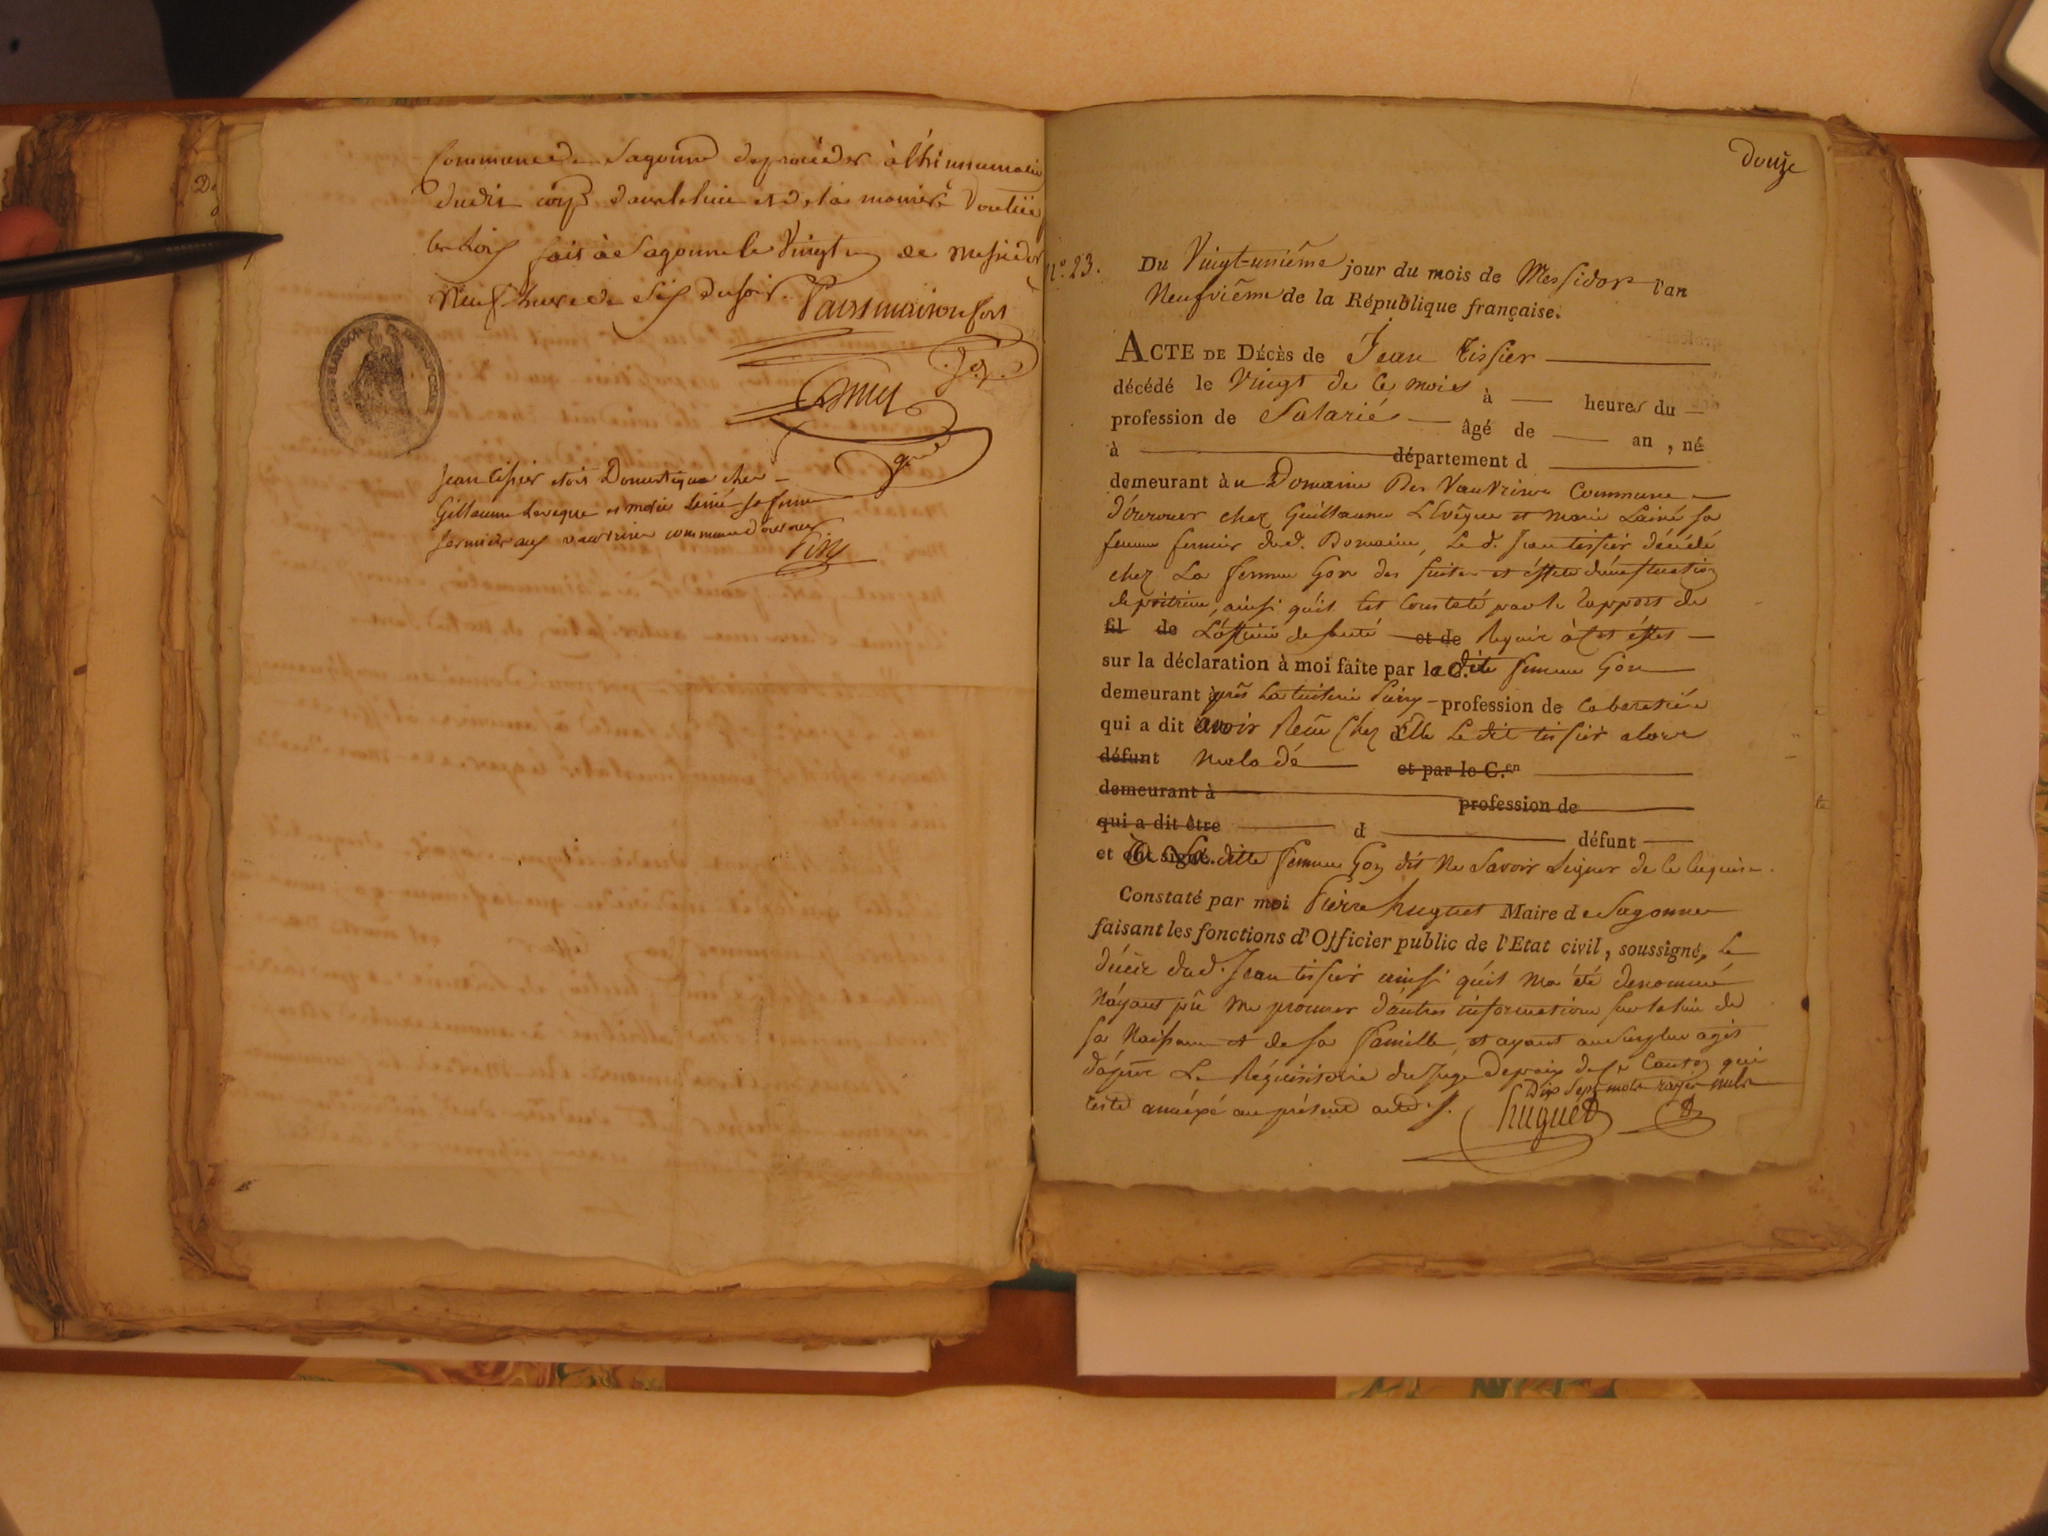 Commune de Sagonne de procéder à l'hinnumation
dudit corps dans le lieu et de la manière voulue
les Lois fait à Sagonne le Vingt de Messidor
Neuf heure de six du soir.
jean tissier etois Domestique chez
Gillaume Leveque et marie Lainé sa feme
fermier aux vauvrine commune d'ourouer
douze
n.º 23. Du Vingt-unième jour du mois de Messidor l'an
Neufvième de la République française.
ACTE DE DÉCÈS de Jean tissier
décédé le Vingt de ce mois à heures du
profession de Salarié âgé de an , né
à département d
demeurant au Domaine Des Vauvrine Commune
d'ourouer chez Guillaume LEvêque et marie Lainé sa
femme fermier dud. Domaine, Le d. jean tissier décédé
chez La femme Gon des suites et éffets d'une fluction
de poitrine, ainsi qu'il Est Constaté par le rapport de
fil de L'officier de santé et de Requis à cet éffet
sur la déclaration à moi faite par la dite femme Gon
demeurant près La tuilerie profession de Cabaretière
qui a dit avoir Reçu Chez Elle Le dit tissier alors
défunt Malade et par le C.en
demeurant à profession de
qui a dit être d défunt
et ont signé. dille femme Gon dit Ne Savoir Signer de ce enquise
Constaté par moi Pierre huguet Maire de Sagonne
faisant les fonctions d'Officier public de l'Etat civil, soussigné, Le
décès dud. Jean tissier ainsi qu'il m'a été denommé
N'ayant pû me procurer d'autres informations sur le lieu de
sa Naissance et de sa famille, et ayant au surplus agit
d'après Le Réquisitoire du Juge de paix de ce Canton qui
Dix Sept mots rayés nuls
reste annéxé au présent acte.
huguet